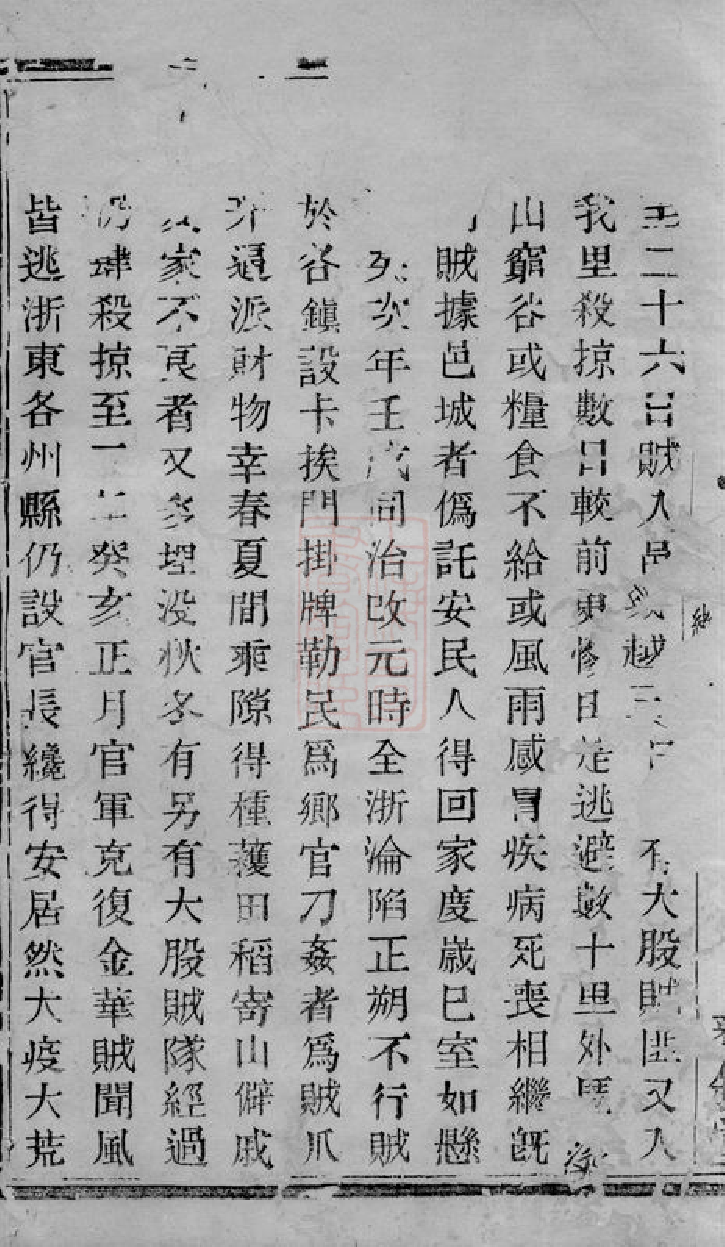 至二十六日賊入邑越三有大股賊匪又入
我里殺掠數日較前更慘由是逃避數十里外深
山窮谷或糧食不給或風雨感冒疾病死喪相繼旣
賊據邑城者僞託安民人得回家度歲已室如懸
次年壬戌同治改元時全浙淪陷正朔不行賊
於各鎭設卡挨門掛牌勒民爲鄉官刀姦者爲賊爪
牙逼派財物幸春夏間乘隙得種蓺田稻寄山僻戚
家不良者又多埋没秋冬有另有大股賊隊經過
仍肆殺掠至二年癸亥正月官軍克復金華賊聞風
皆逃浙東各州縣仍設官長纔得安居然大疫大荒